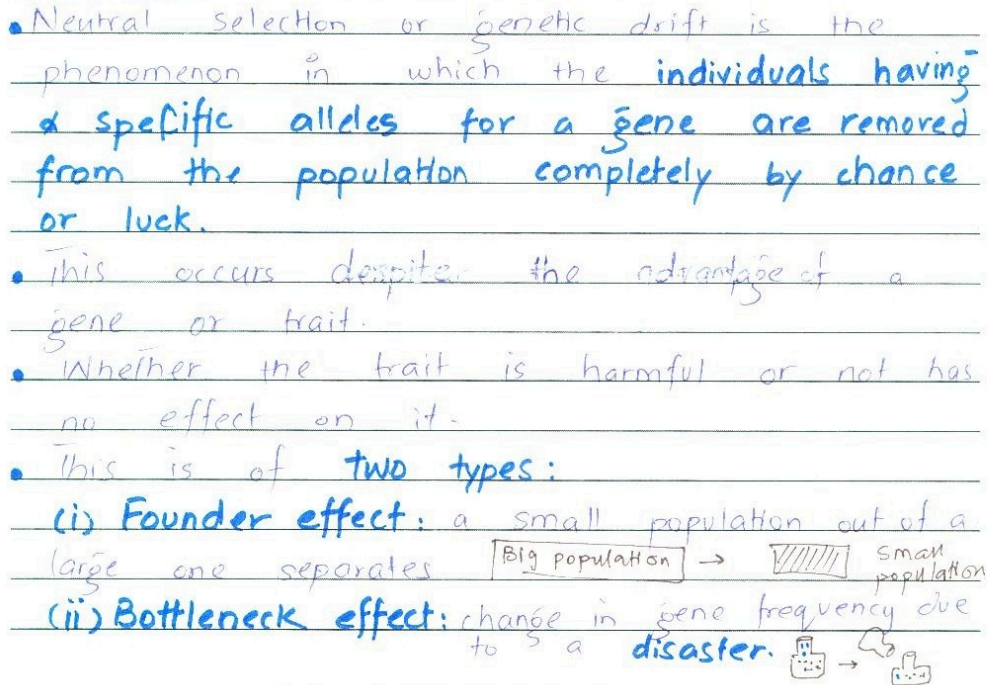 • Neutral selection or genetic drift is the
phenomenon in which the individuals having
a specific alleles for a gene are removed
from the population completely by chance
or luck.
• This occurs despite the advantage of a
gene or trait.
• Whether the trait is harmful or not has
no effect on it.
• This is of two types:
(i) Founder effect: a small population out of a
large one separates Big population → small population
(ii) Bottleneck effect: change in gene frequency due
to a disaster. →